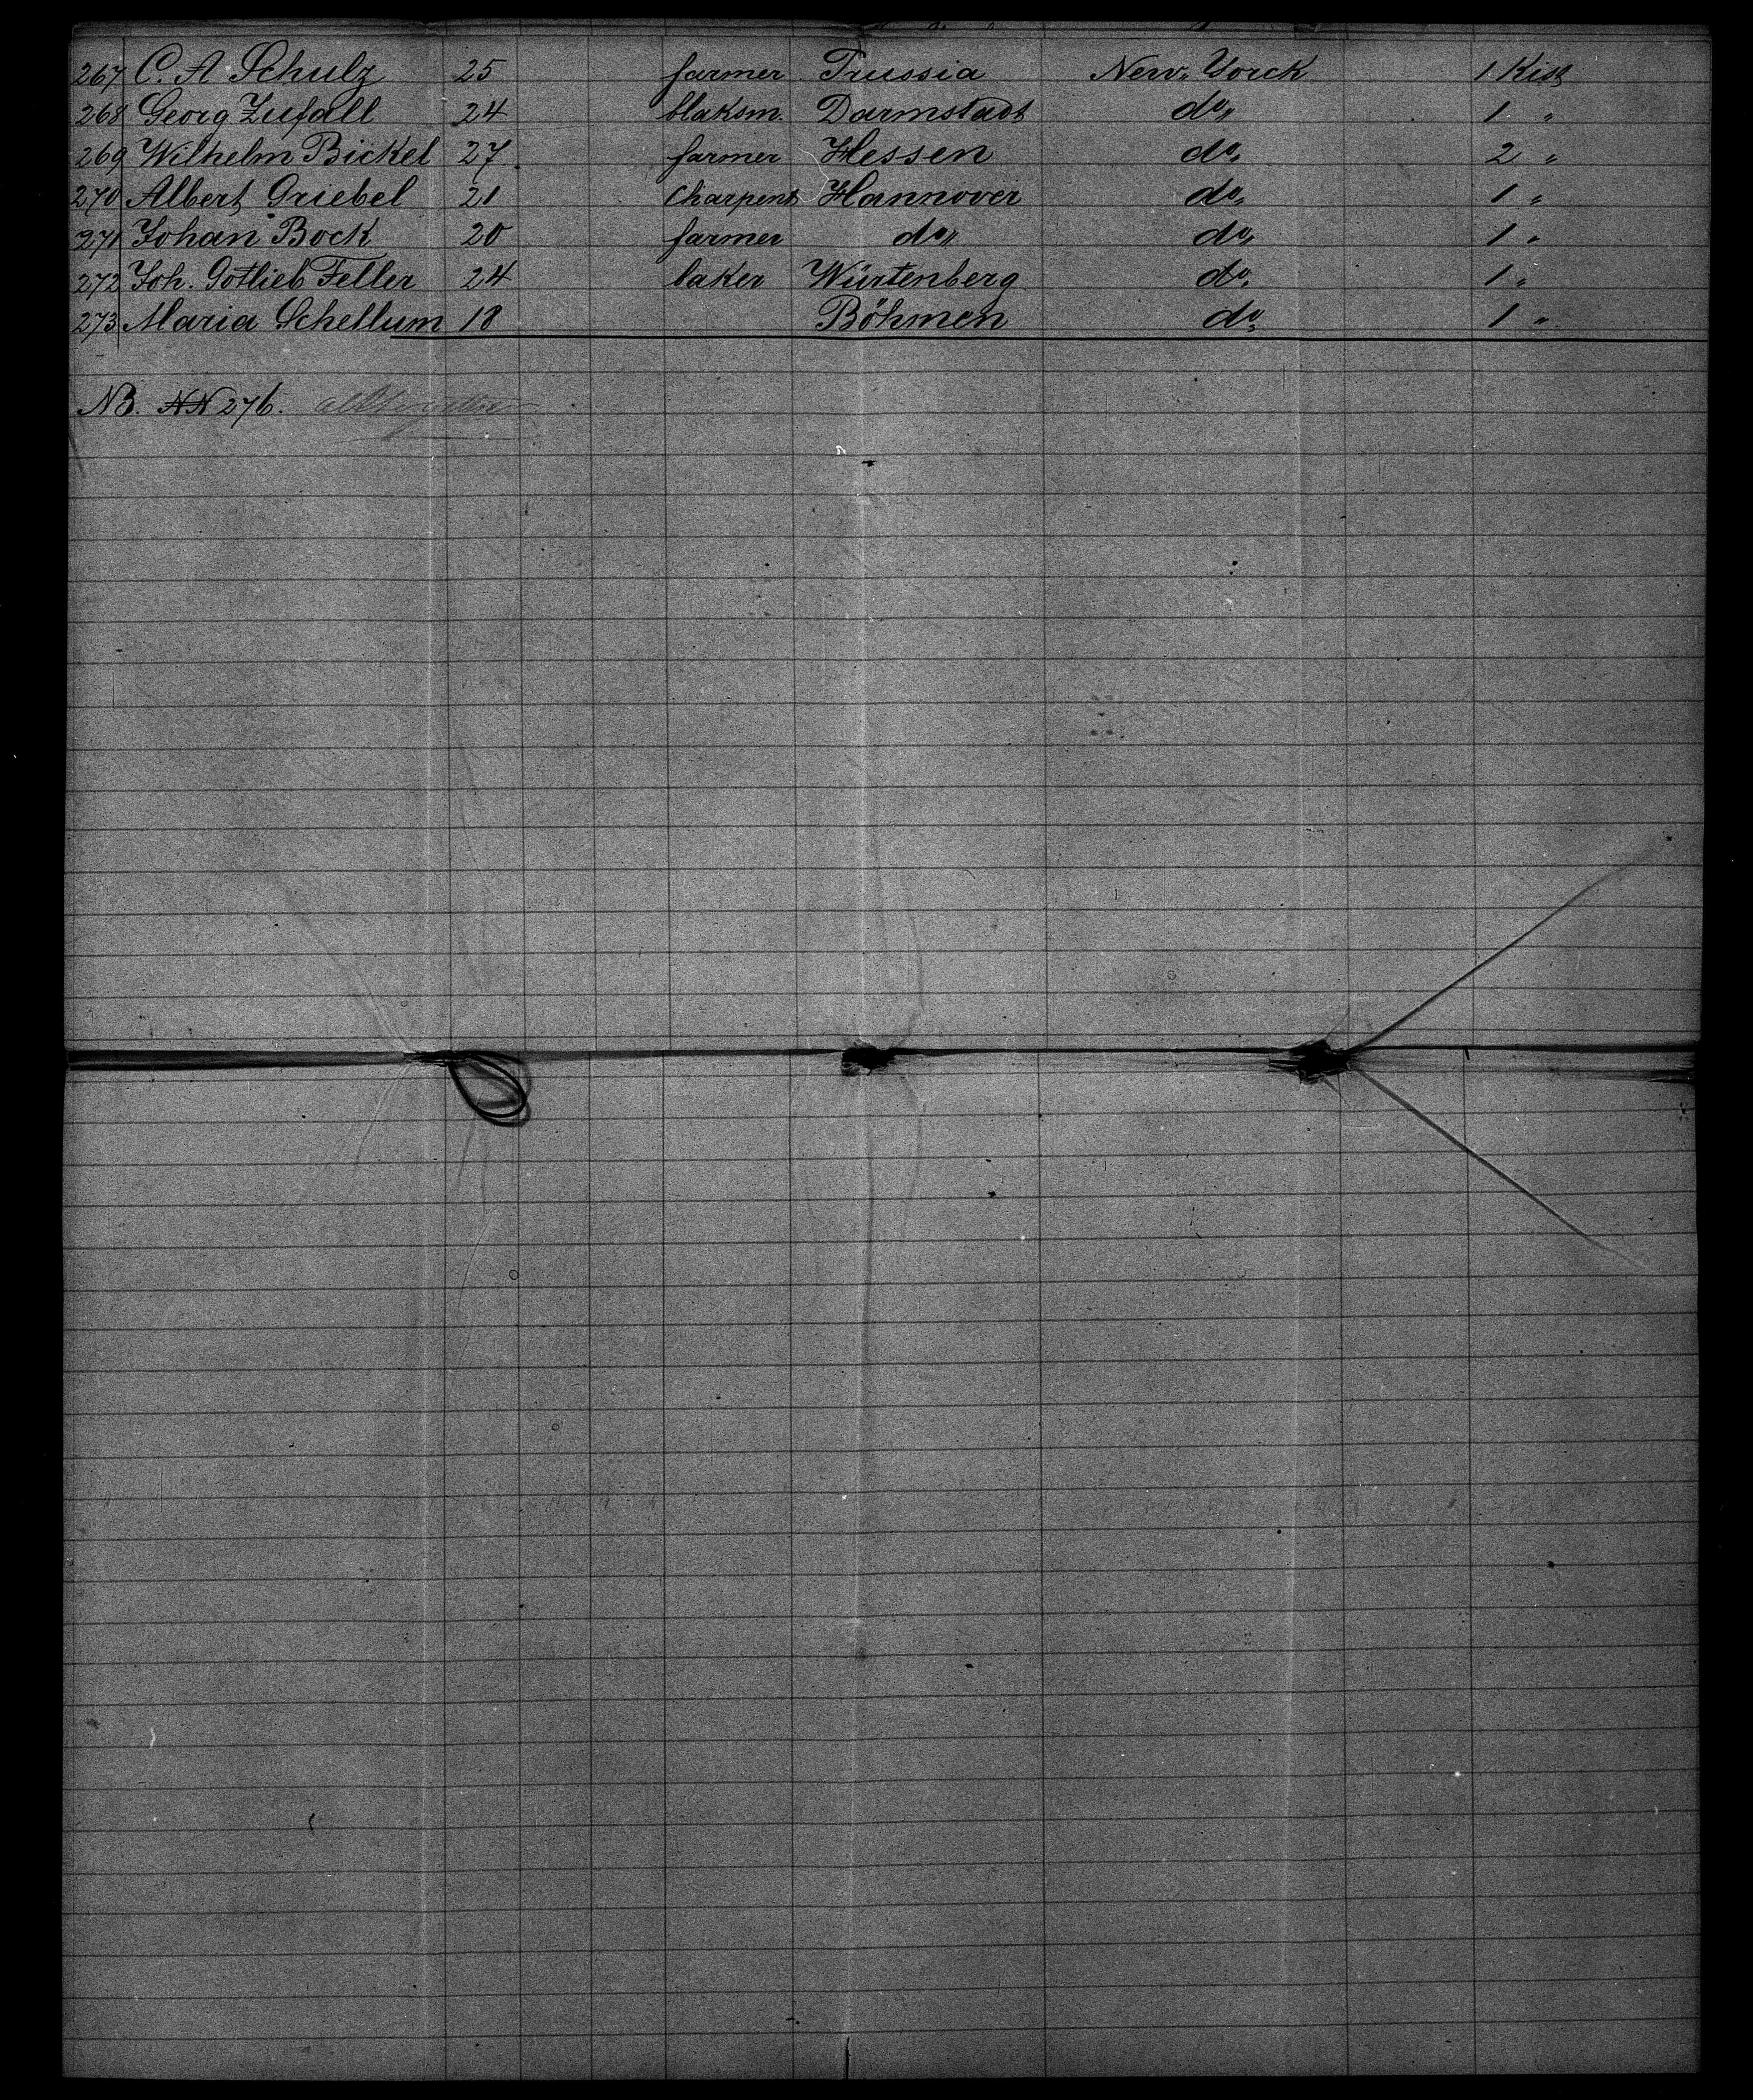 267 C. A Schulz 25 farmer Prussia New-Yorck 1 Kist
268 Georg Zufall 24 blaksm. Darmstadt do„ 1 „
269 Wilhelm Bickel 27 farmer Hessen do„ 2 „
270 Albert Griebel 21 Charpent Hannover do„ 1 „
271 Johan Bock 20 farmer do„ do„ 1 „
272 Joh. Gotlieb Feller 24 baker Würtenberg do„ 1 „
273 Maria Schellum 18 Böhmen do„ 1 „
NB. NN 276. alltogether